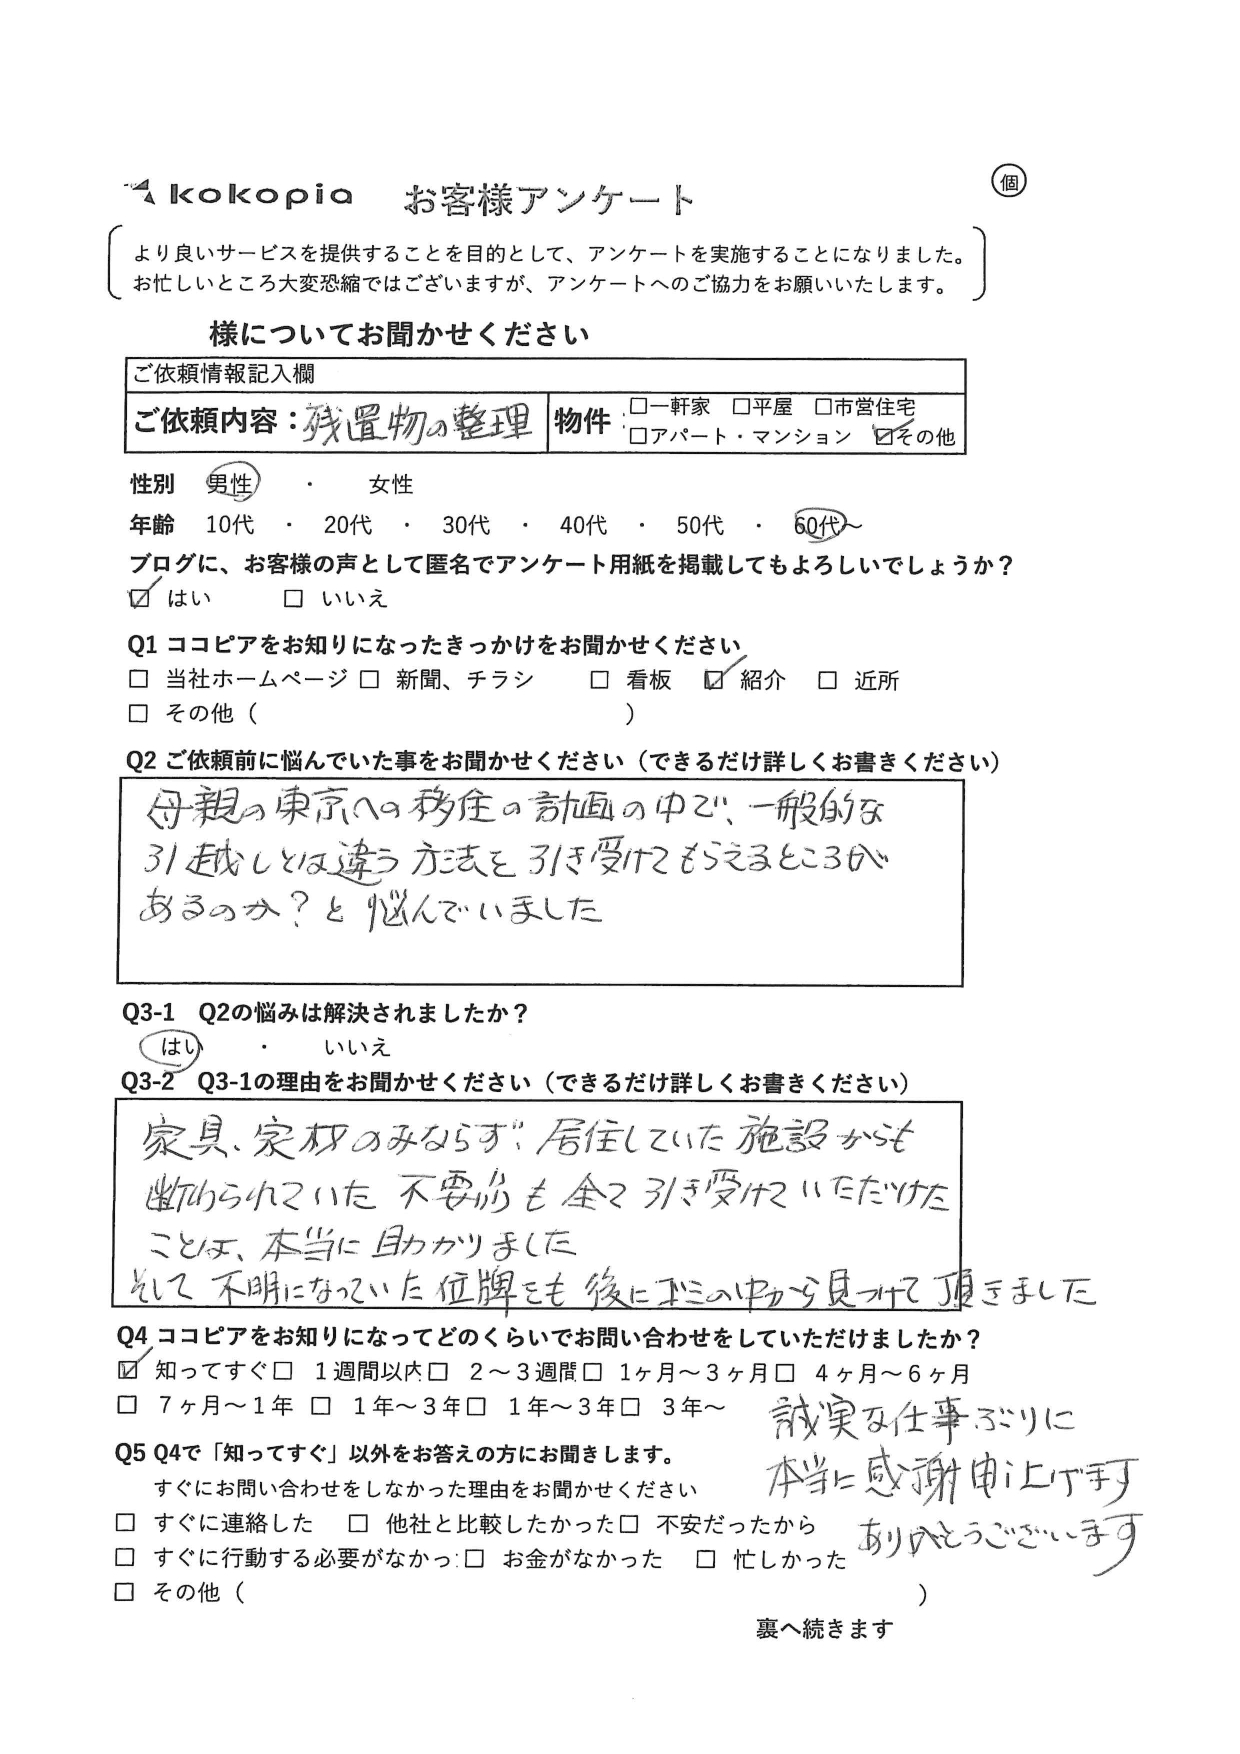 kokopia お客様アンケート ㊝個
より良いサービスを提供することを目的として、アンケートを実施することになりました。
お忙しいところ大変恐縮ではございますが、アンケートへのご協力をお願いいたします。
様についてお聞かせください
ご依頼情報記入欄
ご依頼内容：残置物の整理 物件：□一軒家 □平屋 □市営住宅
□アパート・マンション ☑その他
性別 男性 ・ 女性
年齢 10代 ・ 20代 ・ 30代 ・ 40代 ・ 50代 ・ 60代～
ブログに、お客様の声として匿名でアンケート用紙を掲載してもよろしいでしょうか？
☑ はい □ いいえ
Q1 ココピアをお知りになったきっかけをお聞かせください
□ 当社ホームページ □ 新聞、チラシ □ 看板 ☑ 紹介 □ 近所
□ その他（ ）
Q2 ご依頼前に悩んでいた事をお聞かせください（できるだけ詳しくお書きください）
母親の東京への移住の計画の中で、一般的な
引越しとは違う方法を引き受けてもらえるところが
あるのか？と悩んでいました
Q3-1 Q2の悩みは解決されましたか？
はい ・ いいえ
Q3-2 Q3-1の理由をお聞かせください（できるだけ詳しくお書きください）
家具、家材のみならず、居住していた施設からも
断わられていた不要品も全て引き受けていただけた
ことは、本当に助かりました
そして不明になっていた位牌をも後にゴミの中から見つけて頂きました
Q4 ココピアをお知りになってどのくらいでお問い合わせをしていただけましたか？
☑ 知ってすぐ□ 1週間以内□ 2～3週間□ 1ヶ月～3ヶ月□ 4ヶ月～6ヶ月
□ 7ヶ月～1年 □ 1年～3年□ 1年～3年□ 3年～
誠実な仕事ぶりに
本当に感謝申し上げます
ありがとうございます
Q5 Q4で「知ってすぐ」以外をお答えの方にお聞きします。
すぐにお問い合わせをしなかった理由をお聞かせください
□ すぐに連絡した □ 他社と比較したかった□ 不安だったから
□ すぐに行動する必要がなかっ□ お金がなかった □ 忙しかった
□ その他（ ）
裏へ続きます